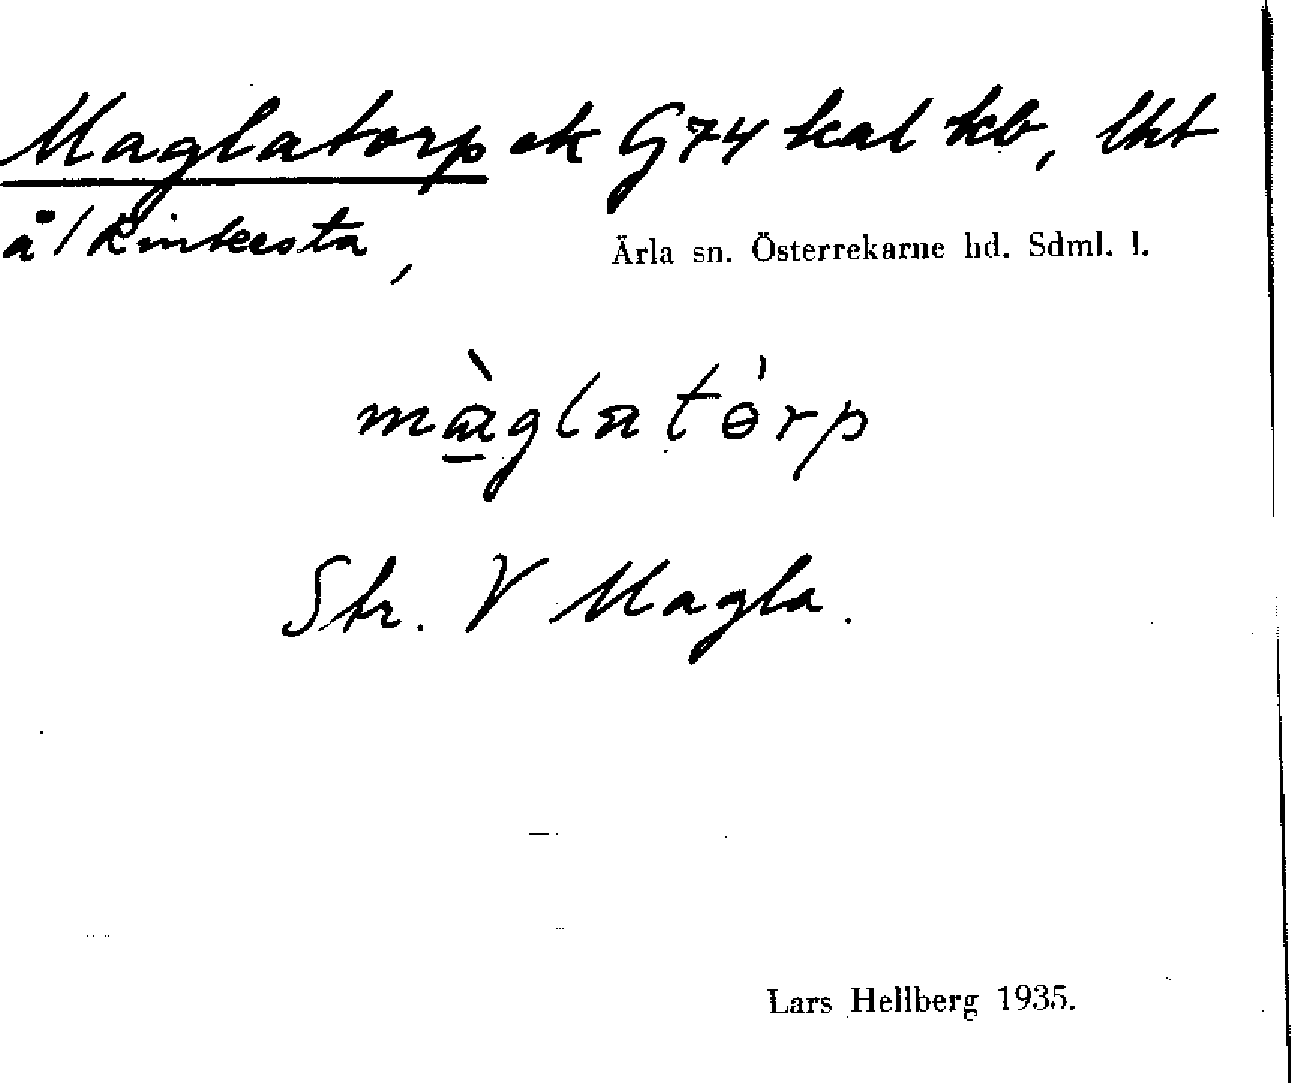 Maglatorp ek G74 kal kb, lht
å/Kinkesta,
Ärla sn. Österrekarne hd. Sdml. l.
màglatórp
Str. V Magla.
Lars Hellberg 1935.